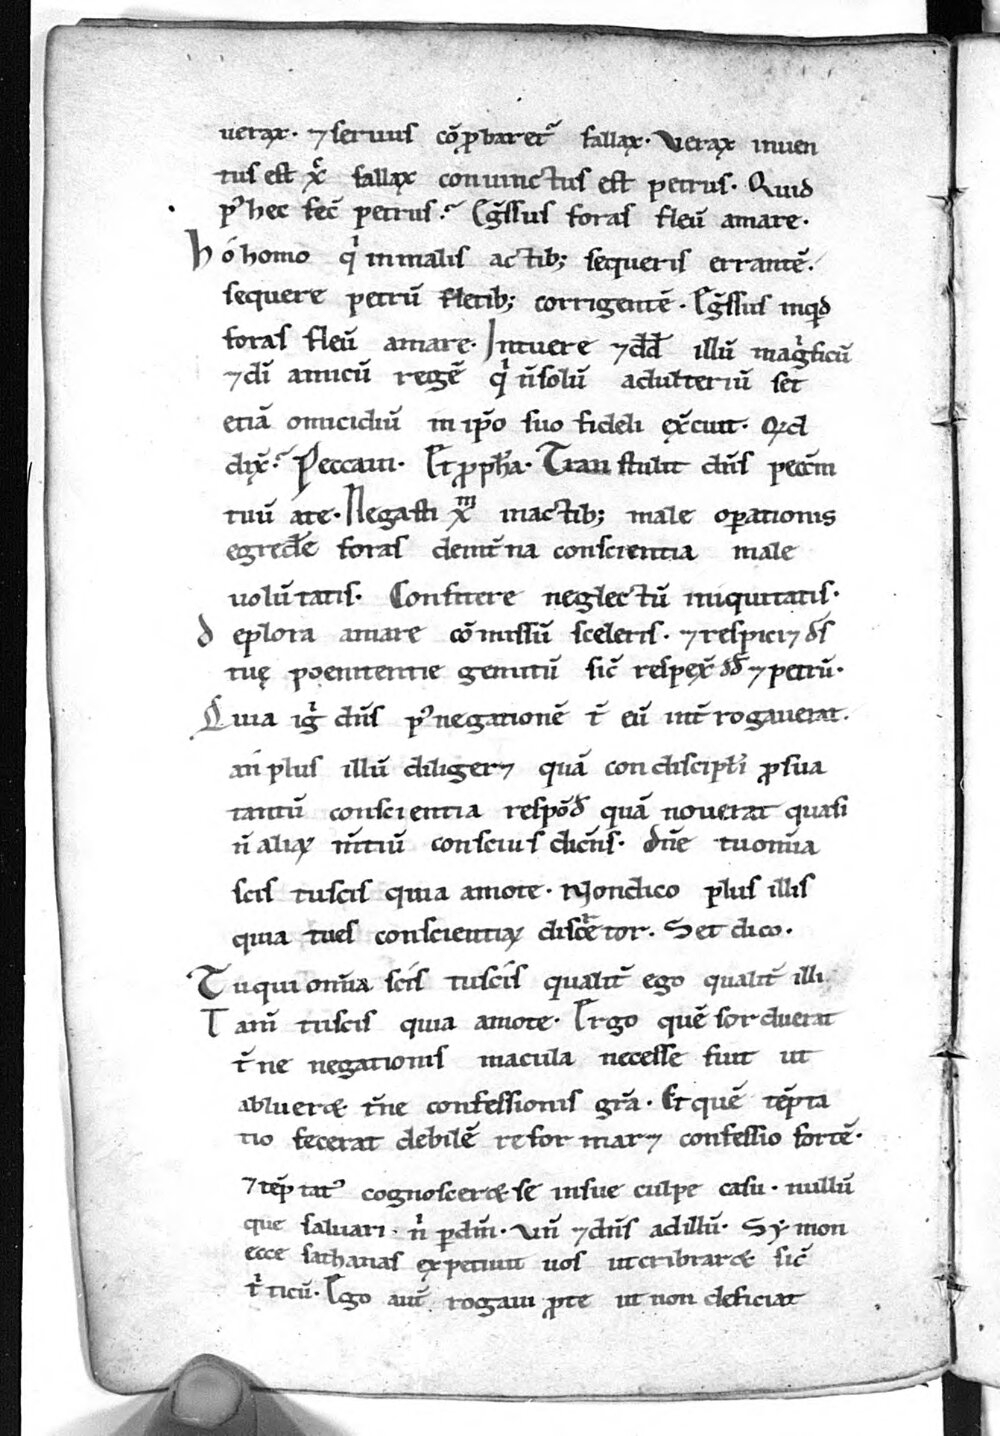 uerax. ⁊ seruus cō ꝓbaretᷣ fallax. Verax inuen
tus est xp̄c fallax conuinctus est petrus. Quid
pꝰ hec fec̄ petrus. Egr̄ssus foras fleū amare.
hó homo qͥ in malis actib; sequeris errantē.
sequere petrū fletib; corrigentē. Egr̄ssus inqͥd
foras fleū amare. Intuere ⁊ dd̄ illū magͥficū
⁊ dī amicū regē qͥ n̄ solū adulteriū set
etiā omicidiū in ip̄o suo fideli ex̄cuit. Qd
dix̄. Peccaui. Et ꝓph̄a. Transtulit dn̄s pecc̄m
tuū a te. Negasti xᵐ in actib; male oꝑationis
egredēe foras de int̄na conscientia male
uolūtatis. Confitere neglectū iniquitatis.
deplora amare cō missū sceleris. ⁊ respici⁊ ds̄
tuę poenitentie gemitū sic̄ respex̄ dd̄ ⁊ petrū.
Quia igͥ dn̄s pꝰ negationē t̄ eū int̄rogauerat.
an plus illū diliger⁊ quā condiscipłi ꝓ sua
tantū conscientia respōd̄ quā nouerat quasi
n̄ alię mn̄tiū conscius dicn̄s. dn̄e tu om̄ia
scis tu scis quia amo te. Non dico plus illis
quia tu es conscientię discr̄etor. Set dico.
Tu qui om̄ia scis tu scis qualit̄ ego qualit̄ illi
Tam̄ tu scis quia amo te. Ergo quē sorduerat
t̄ne negationis macula necesse fuit ut
abluer& t̄ne confessionis gr̄a. Et quē tēpta
tio fecerat debilē reformar⁊ confessio fortē.
⁊ tēptatꝰ cognoscer& se in sue culpe casu. nullū
que saluari. nͥ ꝑdm̄. Vn̄ ⁊ dn̄s ad illū. Symon
ecce sathanas expetiuit uos ut cribrar& sic̄
tͥticū. Ego aut̄ rogaui ꝓ te ut non deficiat